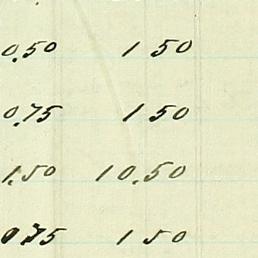 0.50 1 50
0.75 1 50
1.50 10.50
0.75 1 50